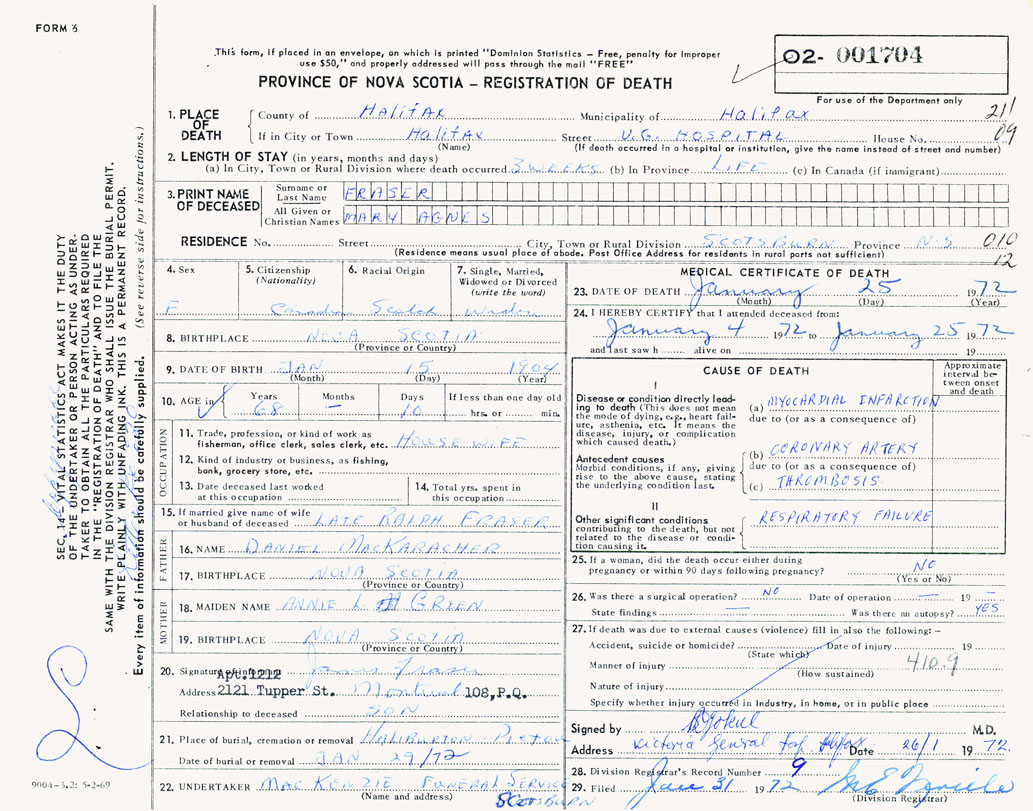 FORM 6
This form, if placed in an envelope, on which is printed "Dominion Statistics – Free, penalty for improper
use $50," and properly addressed will pass through the mail "FREE"
PROVINCE OF NOVA SCOTIA – REGISTRATION OF DEATH
02- 001704
For use of the Department only
211
09
1. PLACE OF DEATH
County of Halifax Municipality of Halifax
If in City or Town Halifax Street V.G. HOSPITAL House No.
(Name) (If death occurred in a hospital or institution, give the name instead of street and number)
2. LENGTH OF STAY (in years, months and days)
(a) In City, Town or Rural Division where death occurred 3 WEEKS (b) In Province LIFE (c) In Canada (if immigrant)
3. PRINT NAME OF DECEASED
Surname or Last Name FRASER
All Given or Christian Names MARY AGNES
RESIDENCE No. Street City, Town or Rural Division SCOTSBURN Province N.S. 010
(Residence means usual place of abode. Post Office Address for residents in rural parts not sufficient) 12
4. Sex F
5. Citizenship (Nationality) Canadian
6. Racial Origin Scotch
7. Single, Married, Widowed or Divorced (write the word)
8. BIRTHPLACE NOVA SCOTIA
(Province or Country)
9. DATE OF BIRTH JAN 15 1904
(Month) (Day) (Year)
10. AGE in Years 68 Months – Days 10 If less than one day old hrs. or min.
OCCUPATION
11. Trade, profession, or kind of work as fisherman, office clerk, sales clerk, etc. HOUSE WIFE
12. Kind of industry or business, as fishing, bank, grocery store, etc.
13. Date deceased last worked at this occupation
14. Total yrs. spent in this occupation
15. If married give name of wife or husband of deceased LATE RALPH FRASER
FATHER
16. NAME DANIEL MACKARACHER
17. BIRTHPLACE NOVA SCOTIA
(Province or Country)
MOTHER
18. MAIDEN NAME ANNIE L. GREEN
19. BIRTHPLACE NOVA SCOTIA
(Province or Country)
20. Signature James Fraser
Apt.1212
Address 2121 Tupper St. Montreal 108, P.Q.
Relationship to deceased SON
21. Place of burial, cremation or removal HALIBURTON PICTOU
Date of burial or removal JAN 29/72
22. UNDERTAKER MACKENZIE FUNERAL SERVICE
(Name and address) SCOTSBURN
MEDICAL CERTIFICATE OF DEATH
23. DATE OF DEATH January 25 1972
(Month) (Day) (Year)
24. I HEREBY CERTIFY that I attended deceased from:
January 4 1972 to January 25 1972
and last saw h alive on 19
CAUSE OF DEATH
Approximate interval between onset and death
I
Disease or condition directly leading to death (This does not mean the mode of dying, e.g., heart failure, asthenia, etc. It means the disease, injury, or complication which caused death.)
(a) MYOCARDIAL INFARCTION
due to (or as a consequence of)
Antecedent causes
Morbid conditions, if any, giving rise to the above cause, stating the underlying condition last.
(b) CORONARY ARTERY
due to (or as a consequence of)
(c) THROMBOSIS
II
Other significant conditions contributing to the death, but not related to the disease or condition causing it.
RESPIRATORY FAILURE
25. If a woman, did the death occur either during pregnancy or within 90 days following pregnancy? NO
(Yes or No)
26. Was there a surgical operation? NO Date of operation – 19 –
State findings – Was there an autopsy? YES
27. If death was due to external causes (violence) fill in also the following: –
Accident, suicide or homicide? Date of injury 19
(State which)
Manner of injury 410.9
(How sustained)
Nature of injury
Specify whether injury occurred in industry, in home, or in public place
Signed by M.D.
Address Victoria General Date 26/1 1972.
28. Division Registrar's Record Number 9
29. Filed Jan 31 1972
(Division Registrar)
SEC. 14 – VITAL STATISTICS ACT MAKES IT THE DUTY
OF THE UNDERTAKER OR PERSON ACTING AS UNDER-
TAKER TO OBTAIN ALL THE PARTICULARS REQUIRED
IN THE "REGISTRATION OF DEATH" AND TO FILE THE
SAME WITH THE DIVISION REGISTRAR WHO SHALL ISSUE THE BURIAL PERMIT.
WRITE PLAINLY WITH UNFADING INK. THIS IS A PERMANENT RECORD.
Every item of information should be carefully supplied. (See reverse side for instructions.)
9004-3.2: 5-2-69